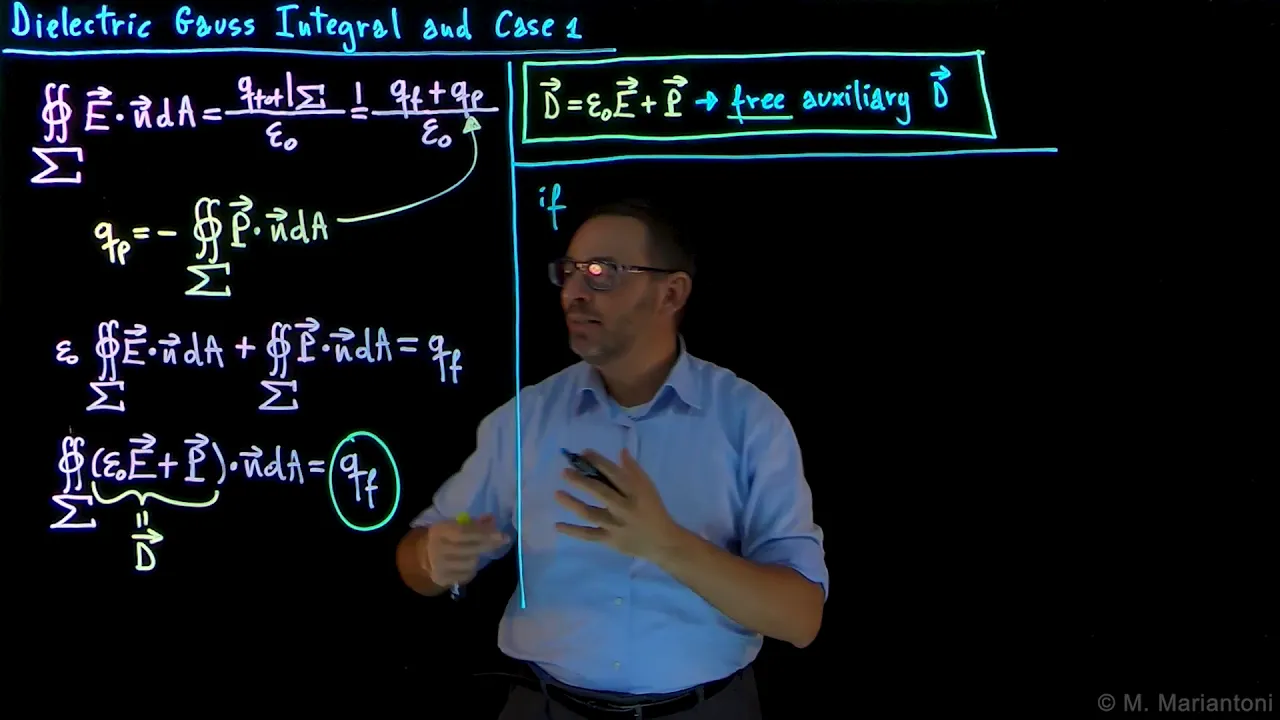 Dielectric Gauss Integral and Case 1
∯_Σ E⃗·n⃗dA = q_tot|_Σ / ε₀ =! (q_f + q_p) / ε₀
q_p = - ∯_Σ P⃗·n⃗dA
ε₀ ∯_Σ E⃗·n⃗dA + ∯_Σ P⃗·n⃗dA = q_f
∯_Σ (ε₀E⃗ + P⃗)·n⃗dA = q_f
=
D⃗
D⃗ = ε₀E⃗ + P⃗ → free auxiliary D⃗
if
© M. Mariantoni